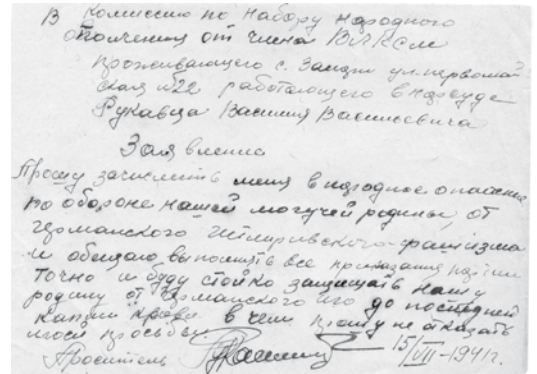 В комиссию по набору народного
ополчения от члена ВЛКСМ
проживающего с. ул. первомай
ская №22 работающего в нарсуде
Рукавца Василия Васильевича
Заявление
Прошу зачислить меня в народное ополчение
по обороне нашей могучей родины, от
германского гитлеровского фашизма
и обещаю выполнять все приказания партии
точно и буду стойко защищать нашу
родину от германского иго до последней
капли крови в чем прошу не отказать
моей просьбы
Проситель 15/VII-1941г.